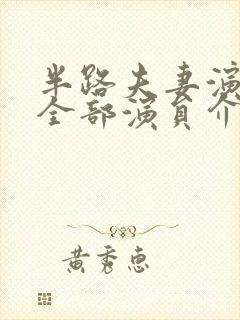 半路夫妻演
全部演员介
黄秀惠